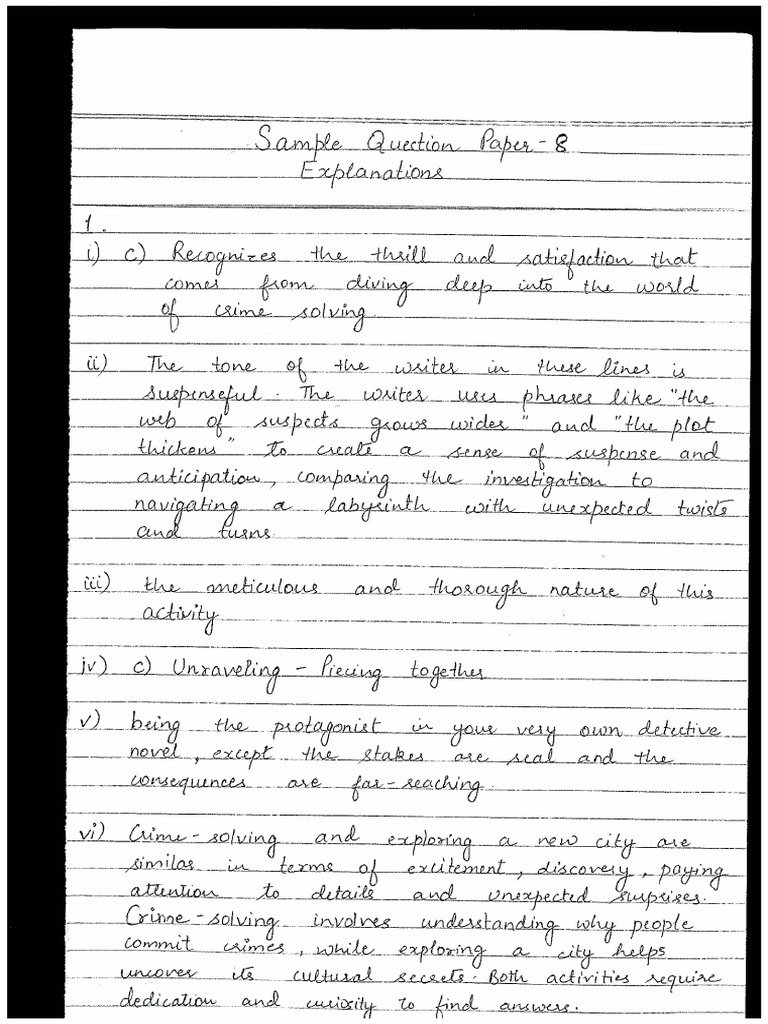 Sample Question Paper - 8
Explanations
1.
i) c) Recognizes the thrill and satisfaction that
comes from diving deep into the world
of crime solving
ii) The tone of the writer in these lines is
suspenseful. The writer uses phrases like "the
web of suspects grows wider" and "the plot
thickens" to create a sense of suspense and
anticipation, comparing the investigation to
navigating a labyrinth with unexpected twists
and turns.
iii) the meticulous and thorough nature of this
activity
iv) c) Unraveling - Piecing together
v) being the protagonist in your very own detective
novel, except the stakes are real and the
consequences are far-reaching.
vi) Crime-solving and exploring a new city are
similar in terms of excitement, discovery, paying
attention to details and unexpected surprises.
Crime-solving involves understanding why people
commit crimes, while exploring a city helps
uncover its cultural secrets. Both activities require
dedication and curiosity to find answers.